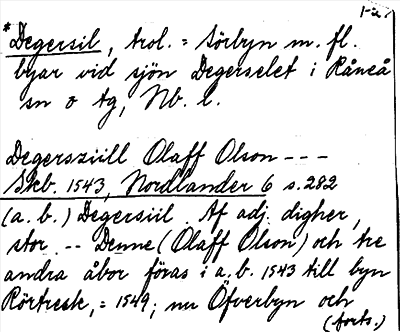 1-27
* Degersil, trol. = Sörbyn m. fl.
byar vid sjön Degerselet i Råneå
sn o tg, Nb. l.
Degersziill Olaff Olson ---
Skb. 1543, Nordlander 6 s. 282
(a. b.) Degersiil. Af adj. digher,
stor. -- Denne (Olaff Olson) och tre
andra åbor föras i a. b. 1543 till byn
Rörtresk, = 1549; nu Öfverbyn och
(forts.)